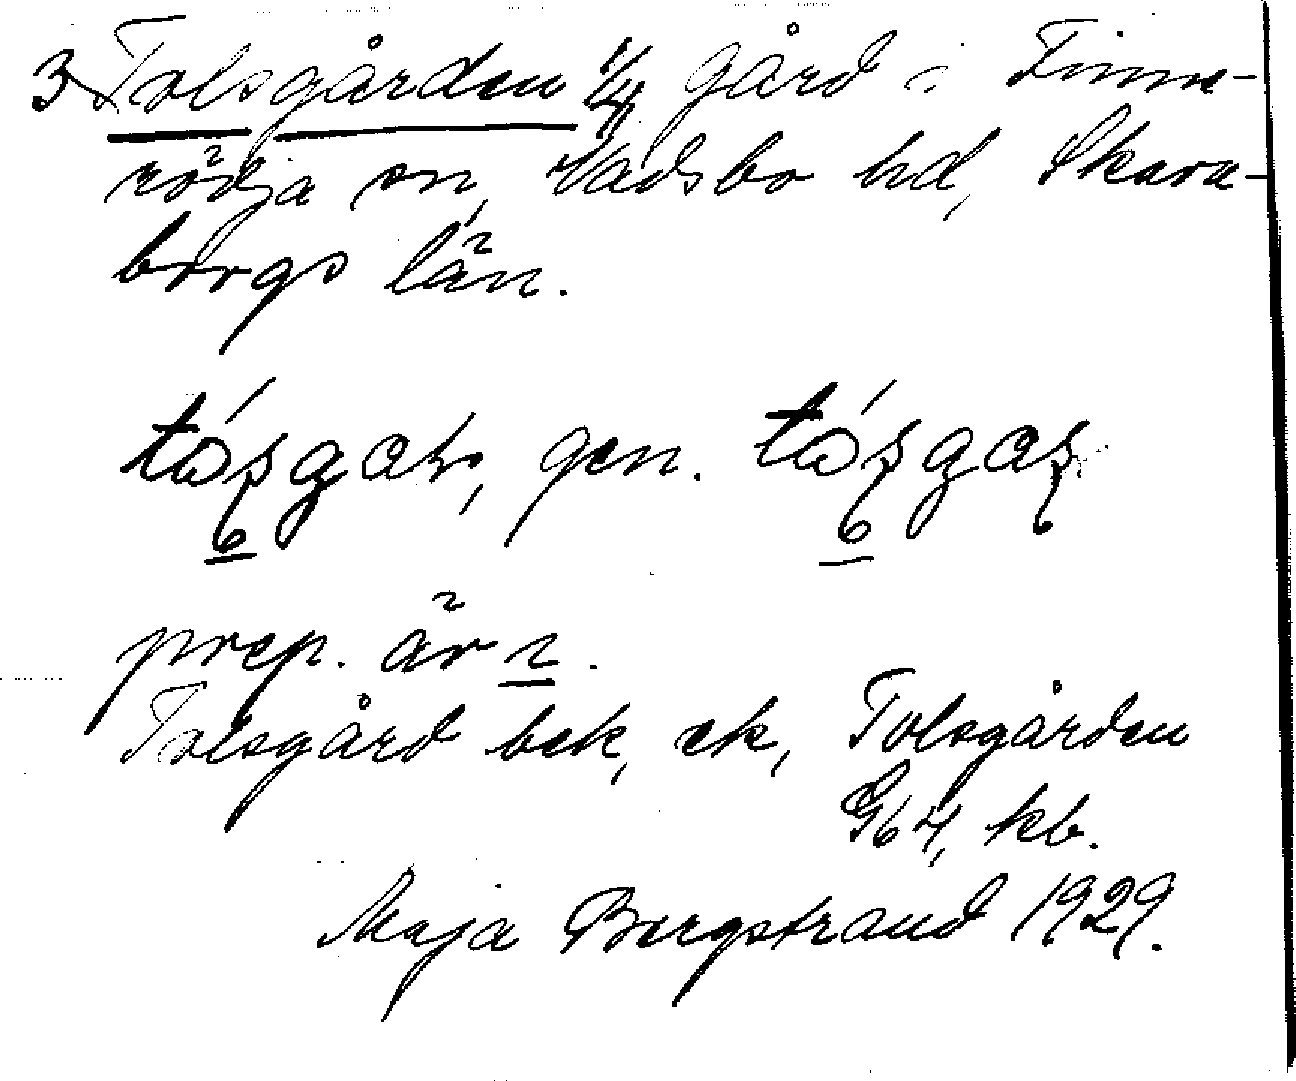 3 Tolsgården 1/4 gård i Finne-
rödja sn, Vadsbo hd, Skara-
borgs län.
gen.
prep. är ı.
Tolsgård bek, ek, Tolsgården
G64, kb.
Maja Bergstrand 1929.